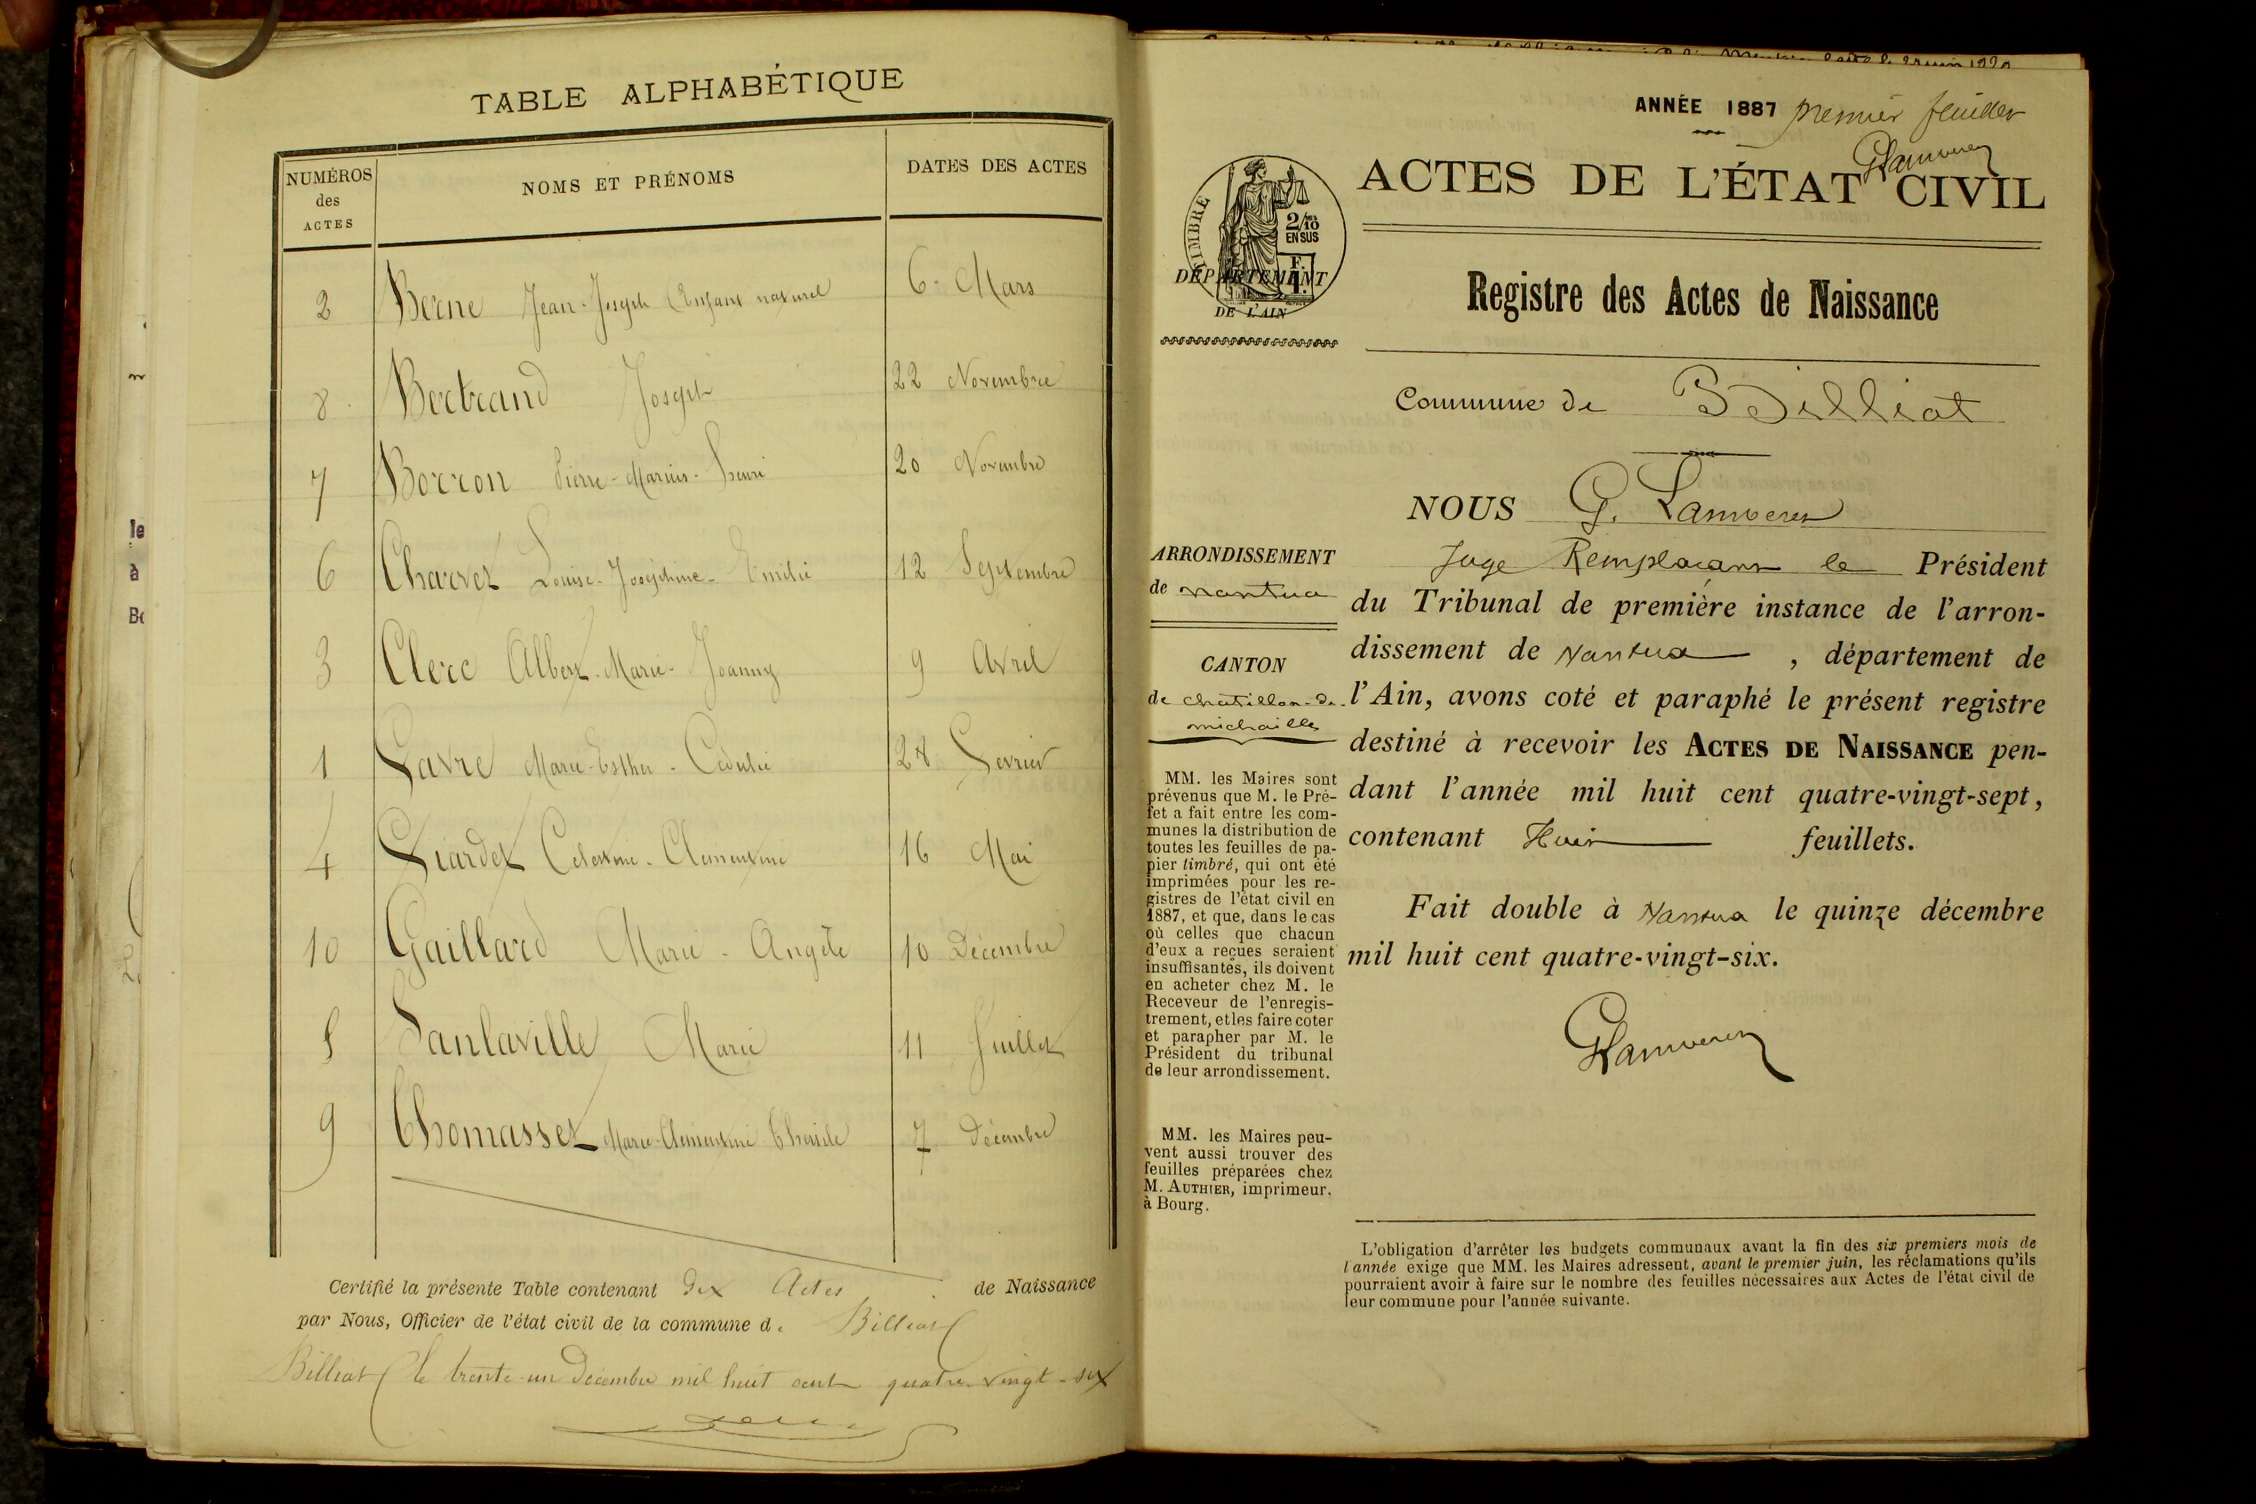 TABLE ALPHABÉTIQUE
NUMÉROS des ACTES
NOMS ET PRÉNOMS
DATES DES ACTES
2 Berne Jean-Joseph (Enfant naturel 6 Mars
8 Bertrand Joseph 22 Novembre
7 Borron Pierre-Marius-Henri 20 Novembre
6 Charvet Louise-Joséphine-Emilie 12 Septembre
3 Clerc Albert-Marie-Joanny 9 Avril
1 Favre Marie-Esther 28 Fevrier
4 Fiardet Celestine-Clementine 16 Mai
10 Gaillard Marie-Angèle 10 Décembre
5 Sanlaville Marie 11 Juillet
9 Thomasset Marie-Clémentine 7 Décembre
Certifié la présente Table contenant dix Actes de Naissance
par Nous, Officier de l'état civil de la commune de Billiat
Billiat le trente-un Décembre mil huit cent quatre-vingt-six
le
à
ANNÉE 1887 premier feuillet
ACTES DE L'ÉTAT CIVIL
TIMBRE
2/10
EN SUS
DÉPARTEMENT
DE L'AIN
Registre des Actes de Naissance
Commune de Billiat
NOUS G.
Juge Remplaçant le Président
du Tribunal de première instance de l'arron-
dissement de Nantua , département de
l'Ain, avons coté et paraphé le présent registre
destiné à recevoir les ACTES DE NAISSANCE pen-
dant l'année mil huit cent quatre-vingt-sept,
contenant Huit feuillets.
Fait double à Nantua le quinze décembre
mil huit cent quatre-vingt-six.
ARRONDISSEMENT
de Nantua
CANTON
de Chatillon-de-
michaille
MM. les Maires sont
prévenus que M. le Pré-
fet a fait entre les com-
munes la distribution de
toutes les feuilles de pa-
pier timbré, qui ont été
imprimées pour les re-
gistres de l'état civil en
1887, et que, dans le cas
où celles que chacun
d'eux a reçues seraient
insuffisantes, ils doivent
en acheter chez M. le
Receveur de l'enregis-
trement, et les faire coter
et parapher par M. le
Président du tribunal
de leur arrondissement.
MM. les Maires peu-
vent aussi trouver des
feuilles préparées chez
M. AUTHIER, imprimeur,
à Bourg.
L'obligation d'arrêter les budgets communaux avant la fin des six premiers mois de
l'année exige que MM. les Maires adressent, avant le premier juin, les réclamations qu'ils
pourraient avoir à faire sur le nombre des feuilles nécessaires aux Actes de l'état civil de
leur commune pour l'année suivante.